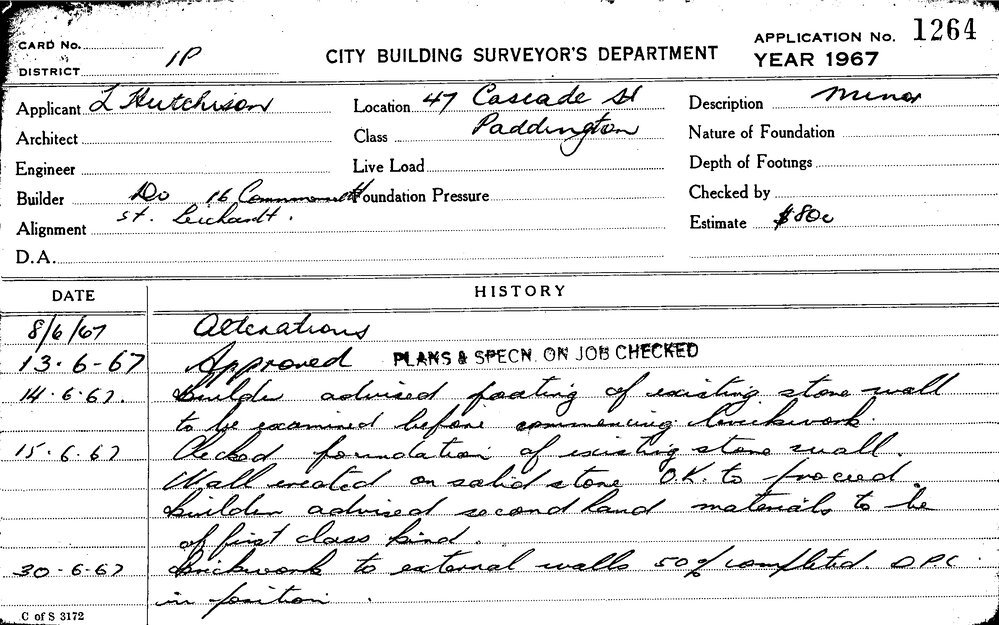 CARD No.
DISTRICT 1P
CITY BUILDING SURVEYOR'S DEPARTMENT
APPLICATION No. 1264
YEAR 1967
Applicant L Hutchison
Location 47 Cascade St
Description Minor
Architect
Class Paddington
Nature of Foundation
Engineer
Live Load
Depth of Footings
Builder Do 16 Commonwealth
Foundation Pressure
Checked by
st. Leichardt.
Alignment
Estimate $800
D.A.
DATE HISTORY
8/6/67 Alterations
13.6-67 Approved PLANS & SPECN. ON JOB CHECKED
14.6.67. Builder advised footing of existing stone wall
to be examined before commencing brickwork.
15.6.67 Checked foundation of existing stone wall.
Wall erected on solid stone O.K. to proceed.
Builder advised second hand materials to be
of first class kind.
30-6-67 Brickwork to external walls 50% completed. DPC
in position.
C of S 3172